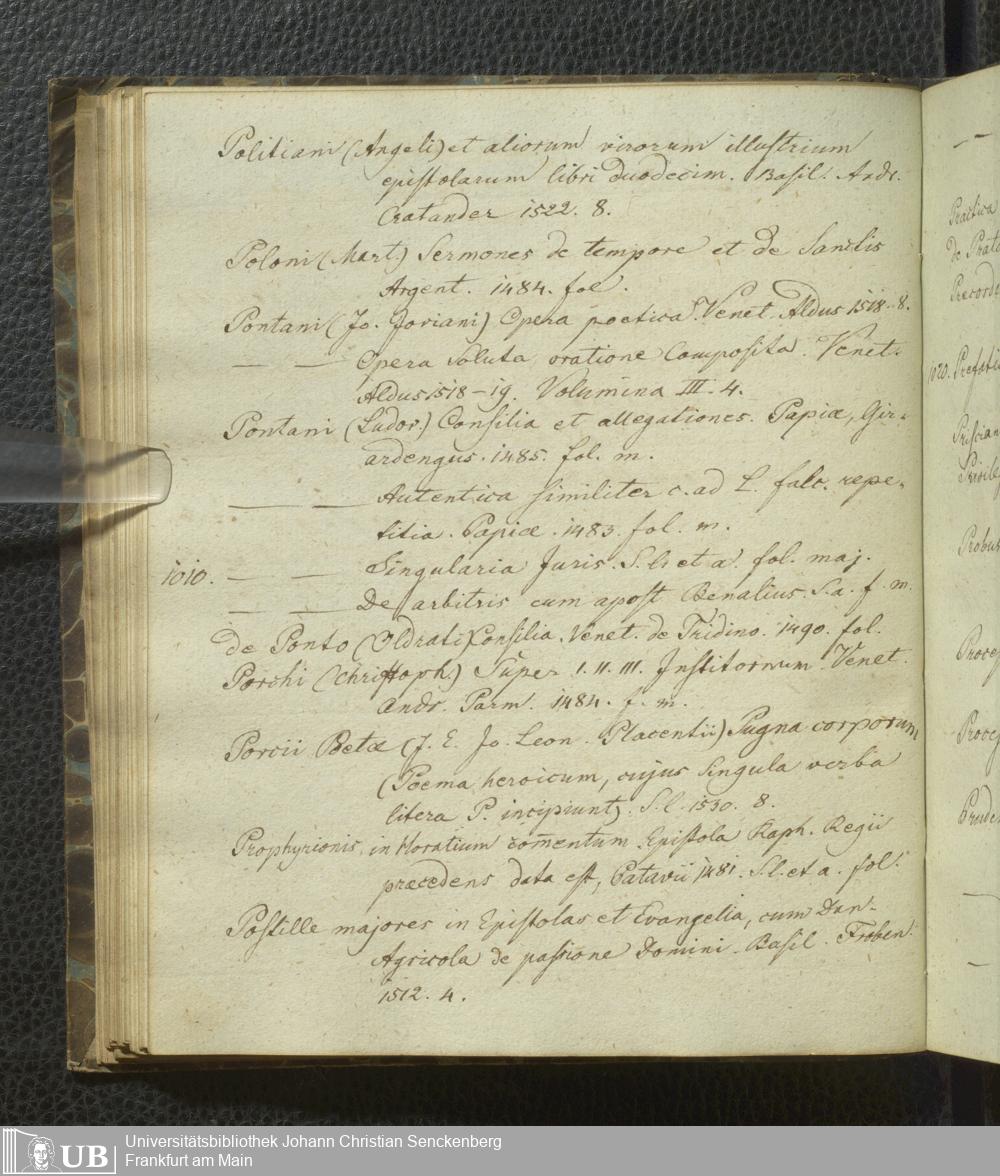 Politiani (Angeli) et aliorum virorum illustrium
epistolarum libri duodecim. Basil. Andr.
Cratander 1522. 8.
Poloni (Mart.) Sermones de tempore et de Sanctis
Argent. 1484. fol.
Pontani (Jo. Joviani) Opera poetica. Venet. Aldus 1518. 8.
— — Opera soluta oratione composita. Venet.
Aldus 1518-19. Volumina III. 4.
Pontani (Ludov.) Consilia et allegationes. Papiæ, Gir-
ardengus. 1485. fol. m.
— — Autentica similiter c. ad L. falc. repe-
titia. Papiæ. 1483. fol. m.
1010. — — Singularia Juris. S. l. et a. fol. maj.
— — De arbitris cum apost Benalius. S. a. f. m.
de Ponto (Oldrati) Consilia. Venet. de Tridino. 1490. fol.
Porchi (Christoph.) Super I. II. III. Institorum. Venet.
Andr. Parm. 1484. f. m.
Porcii Poetæ (J. E. Jo. Leon. Placentii) Pugna corporum
(Poema heroicum, cujus singula verba
litera P. incipiunt). S. l. 1530. 8.
Prophyrionis in Horatium com̄entum. Epistola Raph. Regii
præcedens data est, Patavii 1481. S. l. et a. fol.
Postille majores in Epistolas et Evangelia, cum Dan.
Agricola de passione Domini. Basil. Froben.
1512. 4.
Practica
de Prato
1020.
Probus
Universitätsbibliothek Johann Christian Senckenberg
Frankfurt am Main
UB